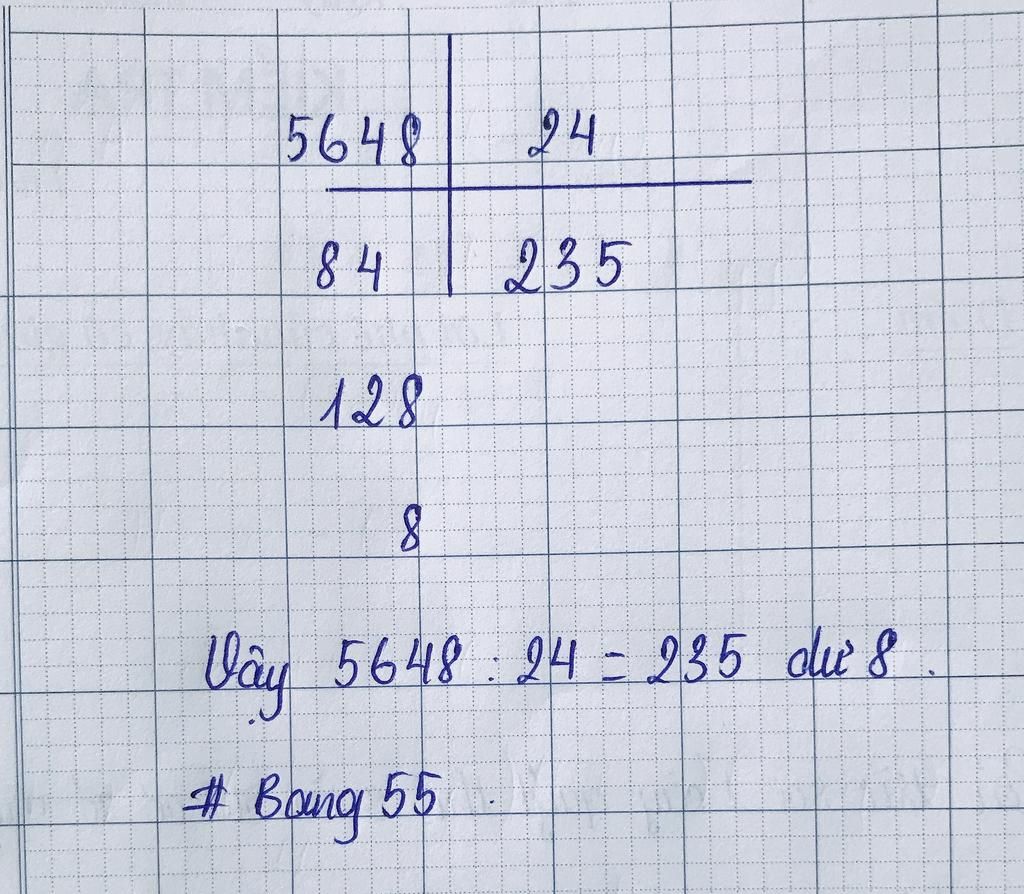 5648 24
84 235
128
8
Vậy 5648 : 24 = 235 dư 8 .
# Bang 55 .